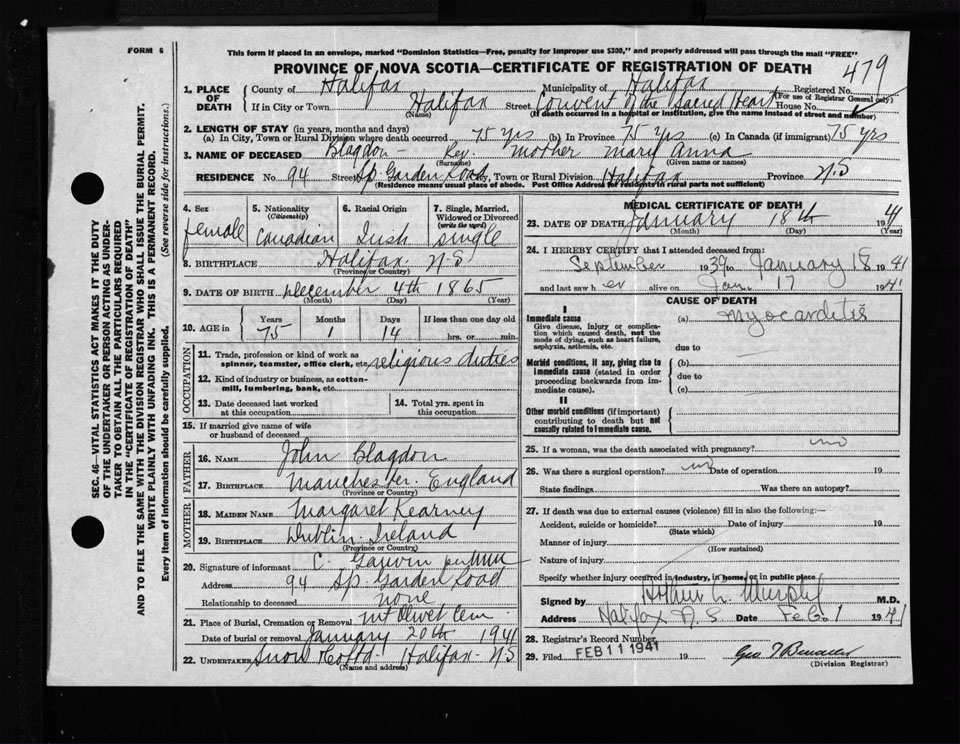 FORM 6
This form if placed in an envelope, marked "Dominion Statistics—Free, penalty for improper use $300," and properly addressed will pass through the mail "FREE"
PROVINCE OF NOVA SCOTIA—CERTIFICATE OF REGISTRATION OF DEATH
479
1. PLACE OF DEATH
County of Halifax Municipality of Halifax Registered No.
(For use of Registrar General only)
If in City or Town Halifax Street Convent of the Sacred Heart House No.
(Name) (If death occurred in a hospital or institution, give the name instead of street and number)
2. LENGTH OF STAY (in years, months and days)
(a) In City, Town or Rural Division where death occurred 75 yrs (b) In Province 75 yrs (c) In Canada (if immigrant) 75 yrs
3. NAME OF DECEASED Blagdon - Rev. Mother Mary Anna
(Surname) (Given name or names)
RESIDENCE No. 94 Street Sp. Garden Road City, Town or Rural Division Halifax Province N.S
(Residence means usual place of abode. Post Office Address for residents in rural parts not sufficient)
4. Sex female
5. Nationality (Citizenship) Canadian
6. Racial Origin Irish
7. Single, Married, Widowed or Divorced (write the word) single
8. BIRTHPLACE Halifax N-S
(Province or Country)
9. DATE OF BIRTH December 4th 1865
(Month) (Day) (Year)
10. AGE in Years 75 Months 1 Days 14 If less than one day old hrs. or min.
OCCUPATION
11. Trade, profession or kind of work as spinner, teamster, office clerk, etc. religious duties
12. Kind of industry or business, as cotton-mill, lumbering, bank, etc.
13. Date deceased last worked at this occupation
14. Total yrs. spent in this occupation
15. If married give name of wife or husband of deceased
FATHER
16. NAME John Blagdon
17. BIRTHPLACE Manchester. England
(Province or Country)
MOTHER
18. MAIDEN NAME Margaret Kearney
19. BIRTHPLACE Dublin Ireland
(Province or Country)
20. Signature of informant C. per
Address 94 Sp. Garden Road
Relationship to deceased none
21. Place of Burial, Cremation or Removal Mt Olivet Cem.
Date of burial or removal January 20th 1941
22. UNDERTAKER Snow & Co Ltd - Halifax - N-S
(Name and address)
MEDICAL CERTIFICATE OF DEATH
23. DATE OF DEATH January 18th 1941
(Month) (Day) (Year)
24. I HEREBY CERTIFY that I attended deceased from:
September 1939 to January 18 1941
and last saw her alive on Jan. 17 1941
CAUSE OF DEATH
I
Immediate cause (a) Myocarditis
Give disease, injury or complication which caused death, not the mode of dying, such as heart failure, asphyxia, asthenia, etc.
due to
Morbid conditions, if any, giving rise to immediate cause (stated in order proceeding backwards from immediate cause).
(b)
due to
(c)
II
Other morbid conditions (if important) contributing to death but not causally related to immediate cause.
25. If a woman, was the death associated with pregnancy? no
26. Was there a surgical operation? no Date of operation 19
State findings Was there an autopsy?
27. If death was due to external causes (violence) fill in also the following:—
Accident, suicide or homicide? Date of injury 19
(State which)
Manner of injury
(How sustained)
Nature of injury
Specify whether injury occurred in industry, in home, or in public place
Signed by Murphy M.D.
Address Halifax N.S Date Feb. 1 1941
28. Registrar's Record Number
29. Filed FEB 11 1941 19 Geo
(Division Registrar)
SEC. 46—VITAL STATISTICS ACT MAKES IT THE DUTY
OF THE UNDERTAKER OR PERSON ACTING AS UNDERTAKER TO OBTAIN ALL THE PARTICULARS REQUIRED
IN THE "CERTIFICATE OF REGISTRATION OF DEATH"
AND TO FILE THE SAME WITH THE DIVISION REGISTRAR WHO SHALL ISSUE THE BURIAL PERMIT.
WRITE PLAINLY WITH UNFADING INK. THIS IS A PERMANENT RECORD.
Every item of information should be carefully supplied. (See reverse side for instructions.)